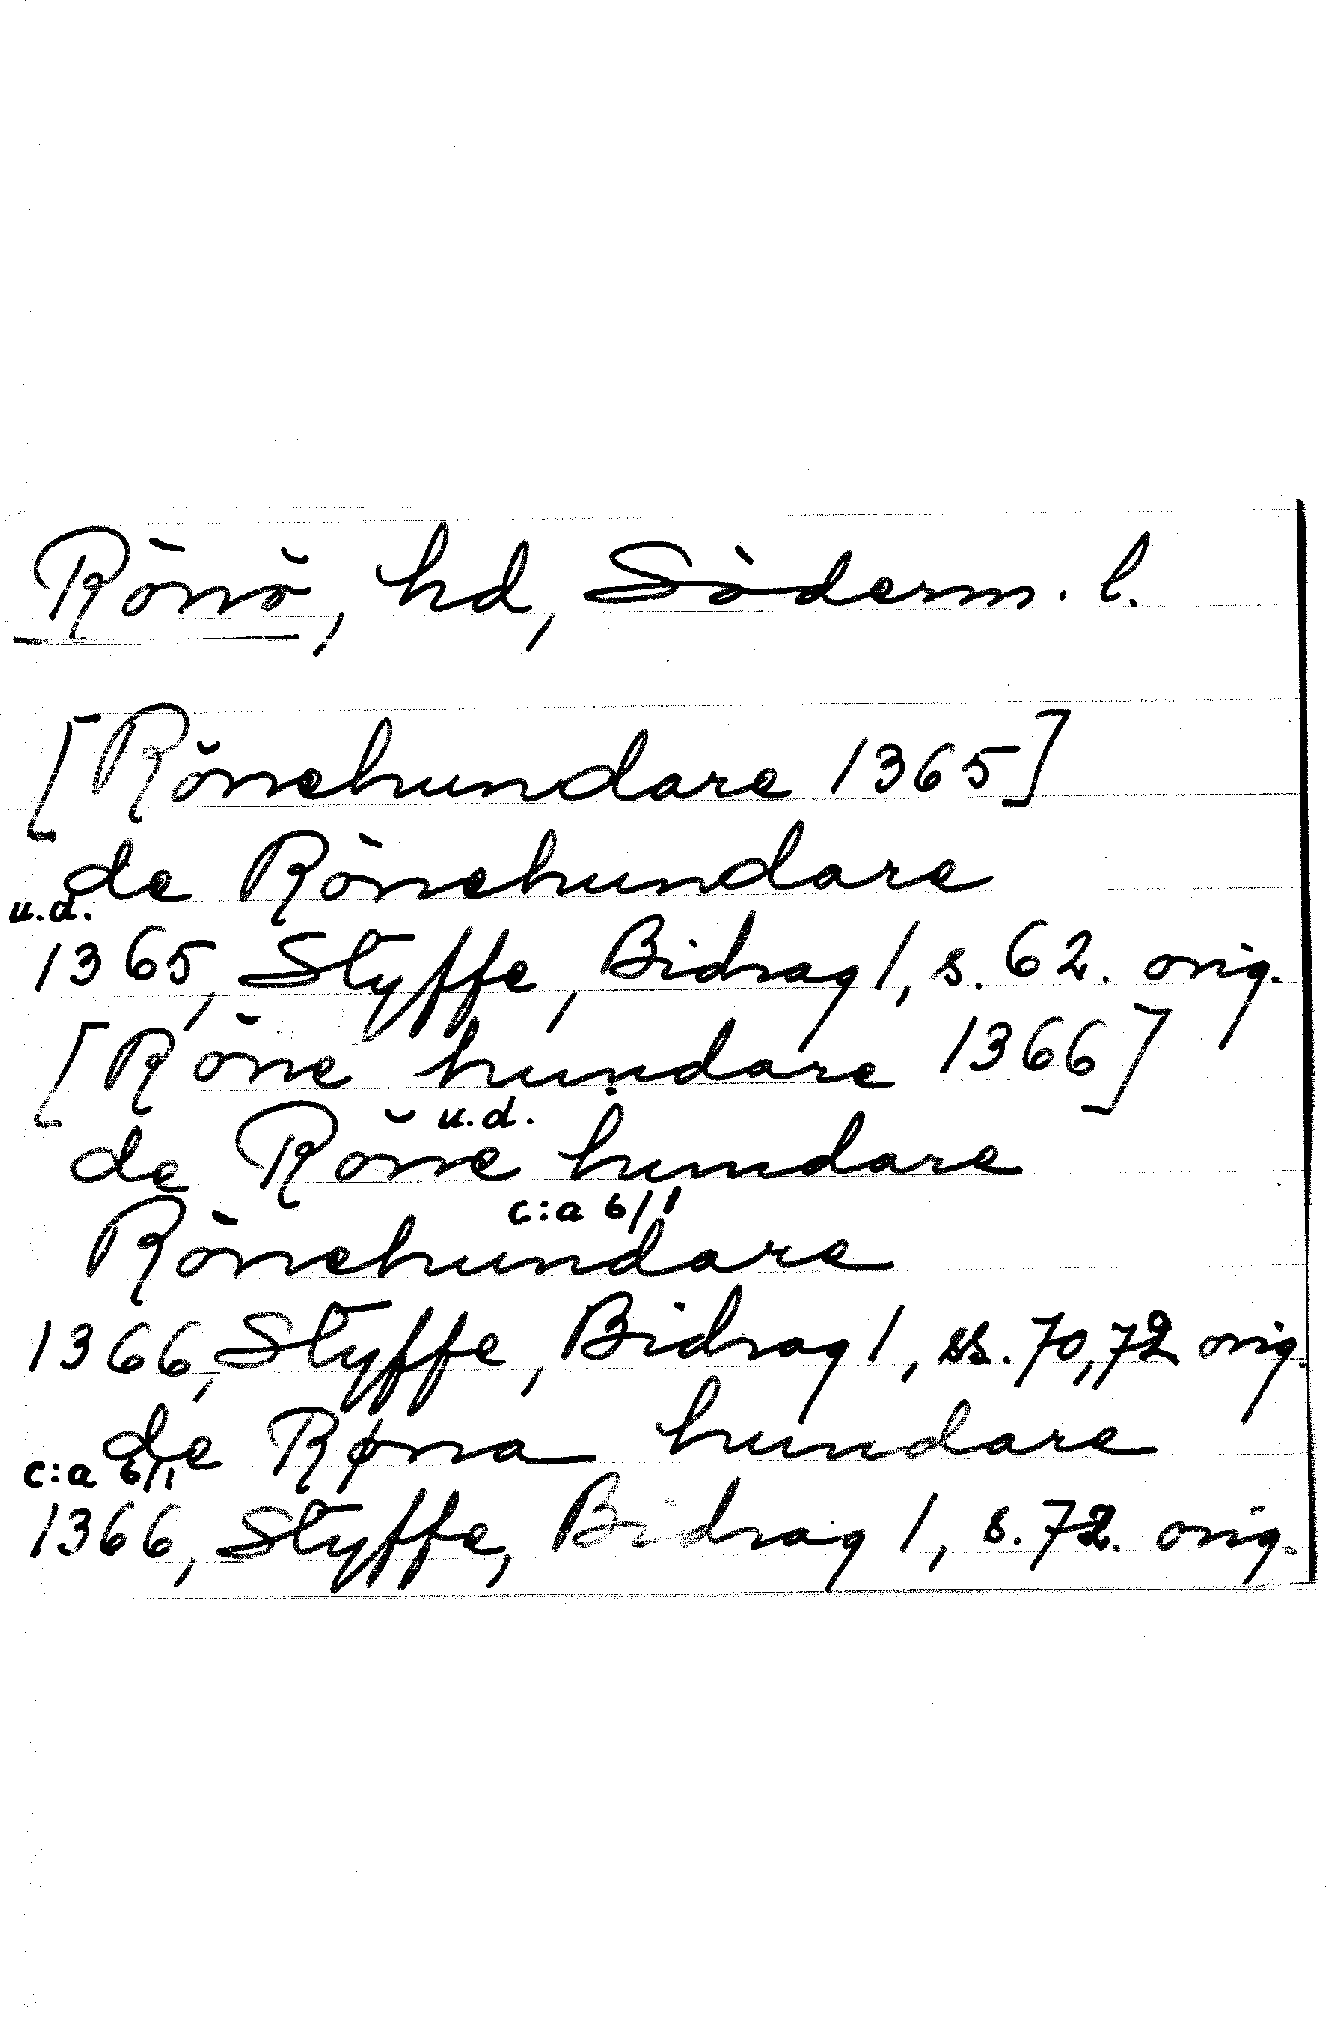 Rönö, hd, Söderm. l.
[Rönehundare 1365]
de Rönehundare
u.d.
1365, Styffe, Bidrag 1, s. 62. orig.
[Röne hundare 1366]
u.d.
de Röne hundare
c:a 6/1
Rönehundare
1366, Styffe, Bidrag 1, ss. 70, 72 orig.
de Røna hundare
c:a 6/1
1366, Styffe, Bidrag 1, s. 72. orig.